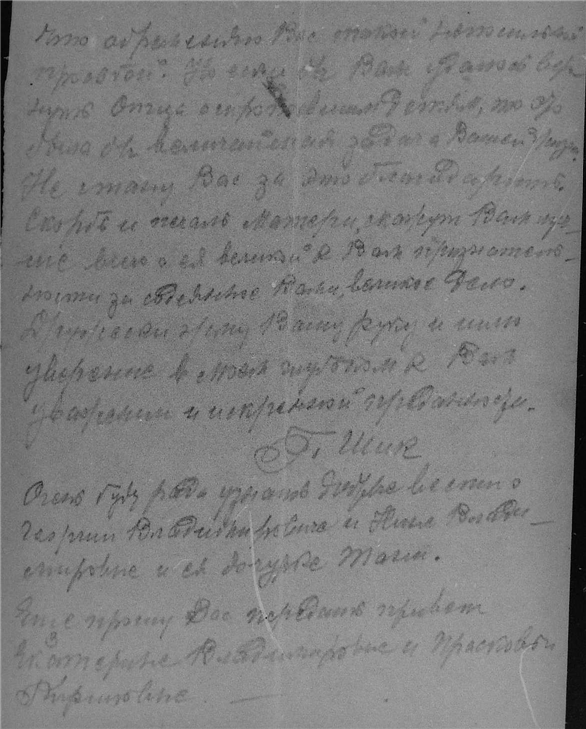 что обременяю Вас такой
просьбой. Но если бы Вам удалось вер-
нуть Отца осиротевшим детям, то это
была бы величайшая задача Вашей жизни.
Не стану Вас за это благодарить.
Скорбь и печаль матери, скажут Вам луч-
ше всего о ея великой к Вам признатель-
ности за сделанное Вами, великое дело.
жму Вашу руку и шлю
уверение в моем глубоком к Вам
уважении и искренной преданности.
Г. Шик
Очень буду рада узнать добрые вести о
Георгии Владимировиче и Нине Влади-
мировне и ея дочурке Тане.
Еще прошу Вас передать привет
Екатерине Владимировне и Прасковьи